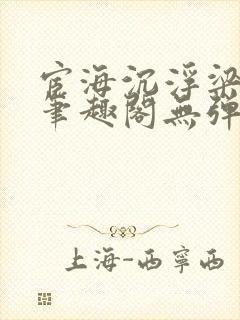 宦海沉浮梁
笔趣阁無弹
上海-西寧西